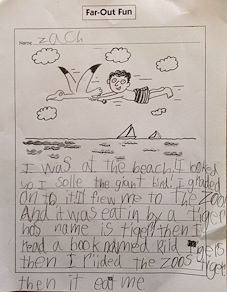 Far-Out Fun
Name zach
I was at the beach. I looked
up I solle the giant bird. I grabed
on to it. It flew me to the zoo
And it was eat in by a tiger
has name is tiger then I
read a book named Kild tigers
then I riided the zoos tiger
then it eat me